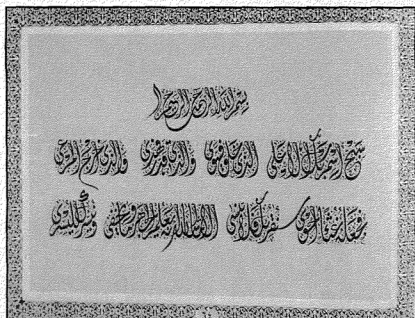 بسم الله الرحمن الرحيم
سبح اسم ربك الاعلى الذي خلق فسوى والذي قدر فهدى والذي اخرج المرعى
فجعله غثاء احوى سنقرئك فلا تنسى الا ما شاء الله انه يعلم الجهر وما يخفى ونيسرك لليسرى